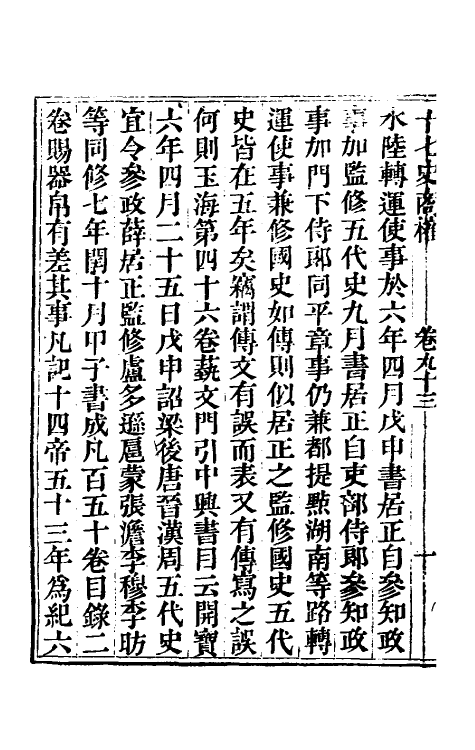 十七史商榷 卷九十三 十
水陸轉運使事於六年四月戊申書居正自參知政
事加監修五代史九月書居正自吏部侍郎參知政
事加門下侍郎同平章事仍兼都提㸃湖南等路轉
運使事兼修國史如傳則似居正之監修國史五代
史皆在五年矣竊謂傳文有誤而表又有傳寫之誤
何則玉海第四十六卷藝文門引中興書目云開寶
六年四月二十五日戊申詔梁後唐晉漢周五代史
宜令參政薛居正監修盧多遜扈蒙張澹李穆李昉
等同修七年閏十月甲子書成凡百五十卷目錄二
卷賜器帛有差其事凡記十四帝五十三年爲紀六